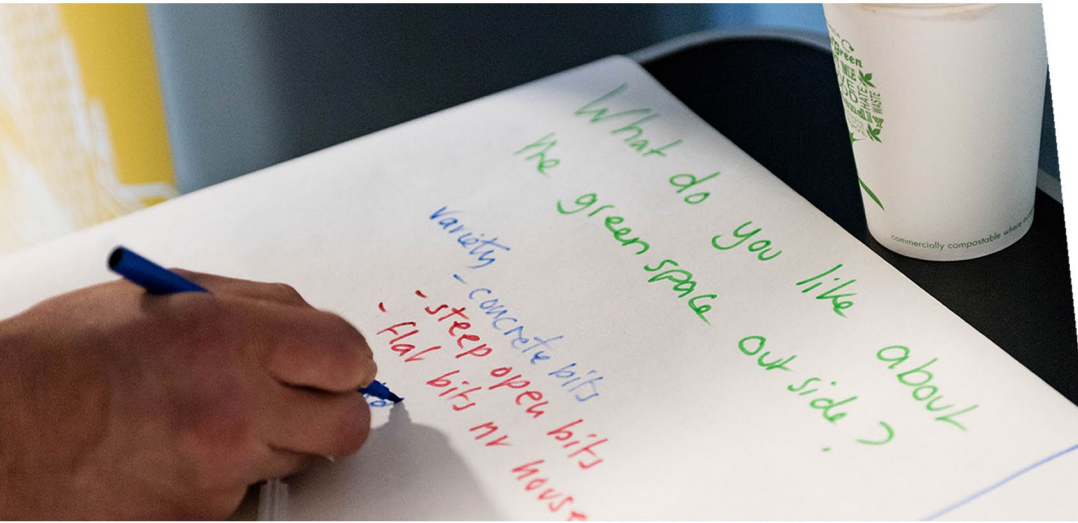 What do you like about
the green space outside?
variety
- concrete bits
- steep open bits
- flat bits nr house
green
WASTE
commercially compostable where